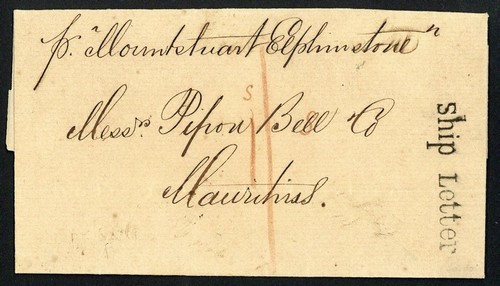 p. "Mountstuart Elphinstone"
Messrs. Pipon Bell & Co
Mauritius.
Ship Letter